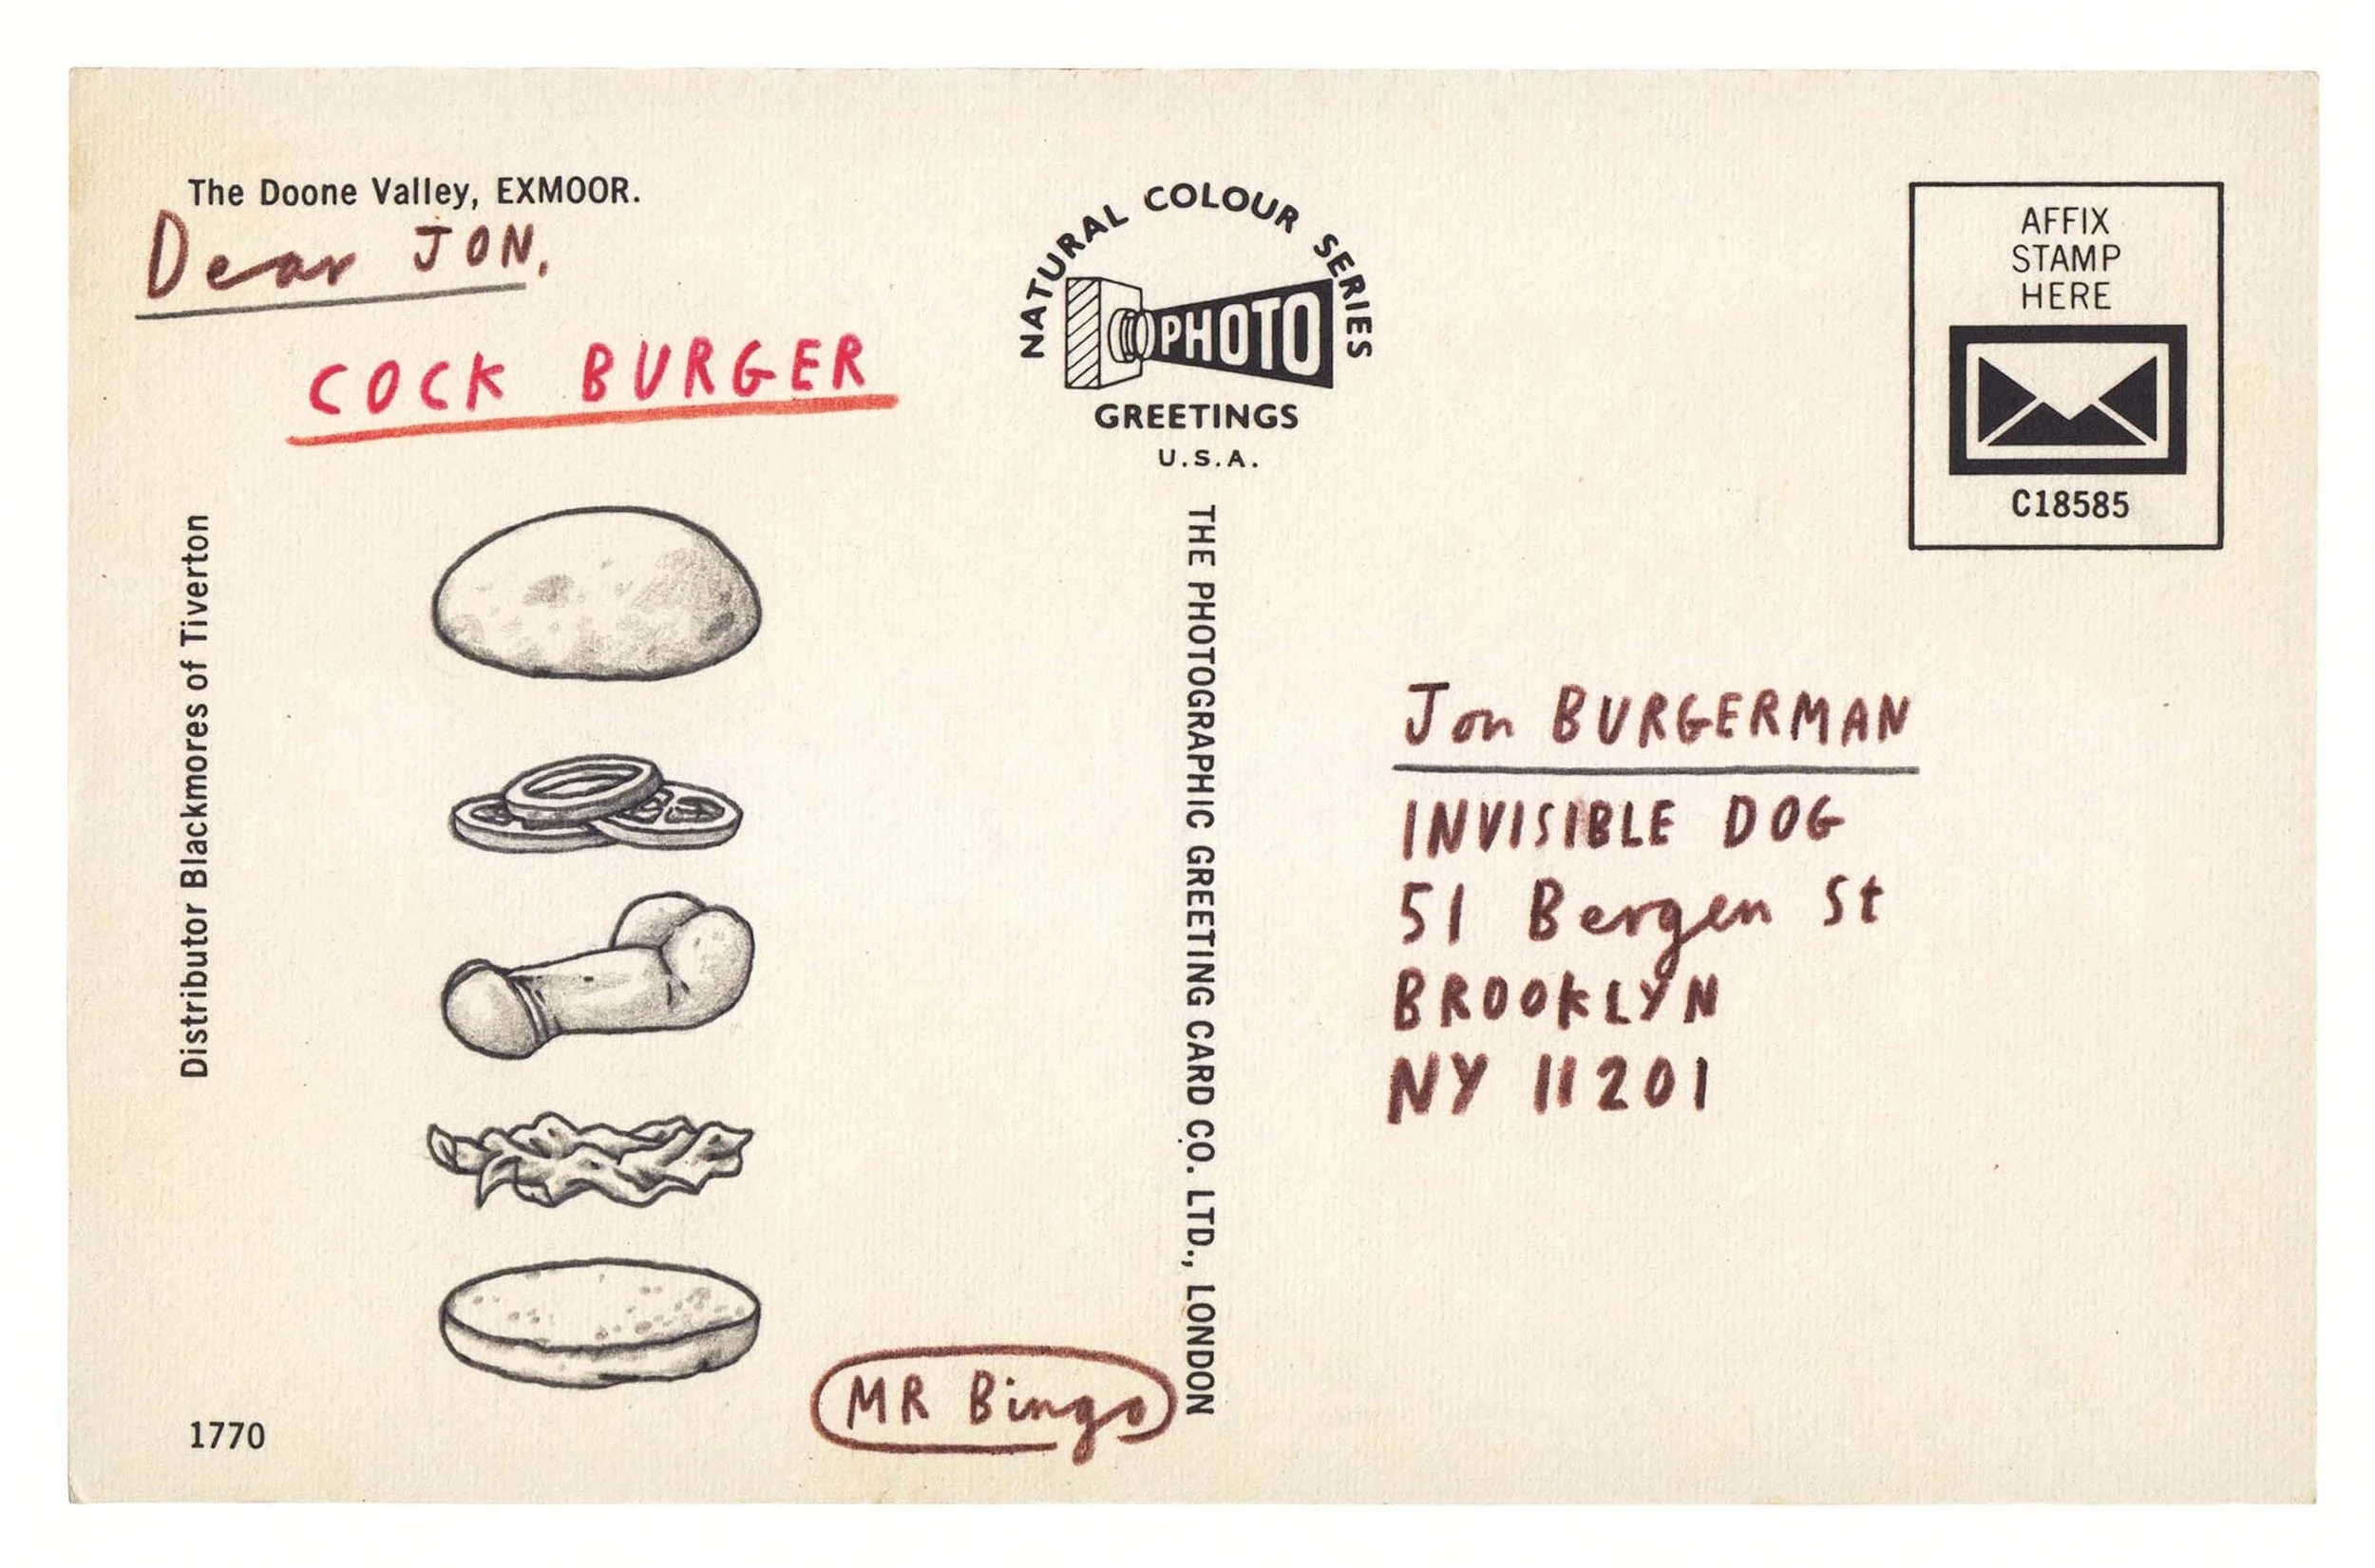 The Doone Valley, EXMOOR.
Dear JON.
COCK BURGER
Distributor Blackmores of Tiverton
1770
MR Bingo
NATURAL COLOUR SERIES
PHOTO
GREETINGS
U.S.A.
THE PHOTOGRAPHIC GREETING CARD CO. LTD., LONDON
AFFIX
STAMP
HERE
C18585
Jon BURGERMAN
INVISIBLE DOG
51 Bergen St
BROOKLYN
NY 11201